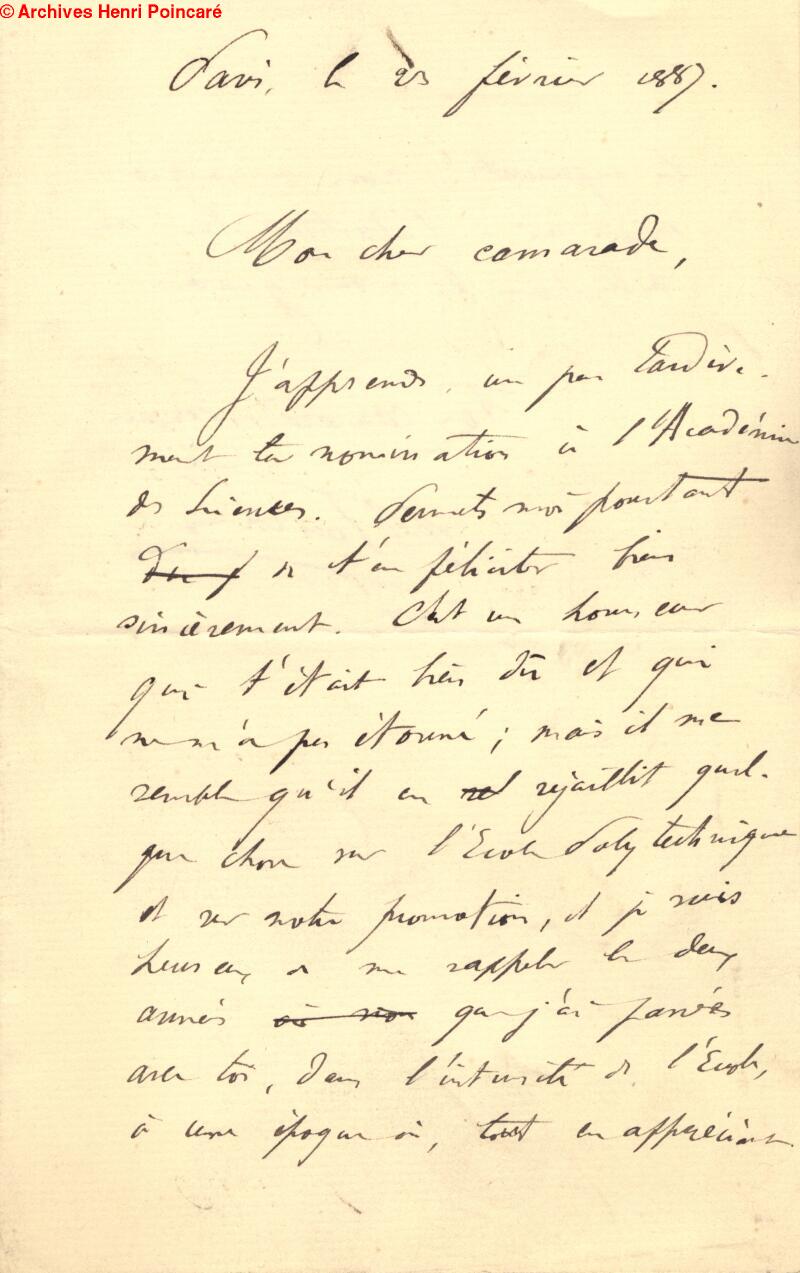 © Archives Henri Poincaré
Paris, le 23 février 1887.
Mon cher camarade,
J'apprends un peu tardive-
ment ta nomination à l'Académie
des Sciences. Permets moi pourtant
de t'en féliciter bien
sincèrement. C'est un honneur
qui t'était bien dû et qui
ne m'a pas étonné ; mais il me
semble qu'il en rejaillit quel-
que chose sur l'Ecole Polytechnique
et sur notre promotion, et je suis
heureux de me rappeler les deux
années où nou que j'ai passées
avec toi, dans l'intimité de l'Ecole,
à une époque où, tout en appréciant